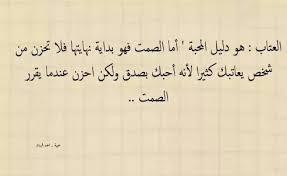 العتاب : هو دليل المحبة ' أما الصمت فهو بداية نهايتها فلا تحزن من
شخص يعاتبك كثيرا لأنه أحبك بصدق ولكن احزن عندما يقرر
الصمت ..